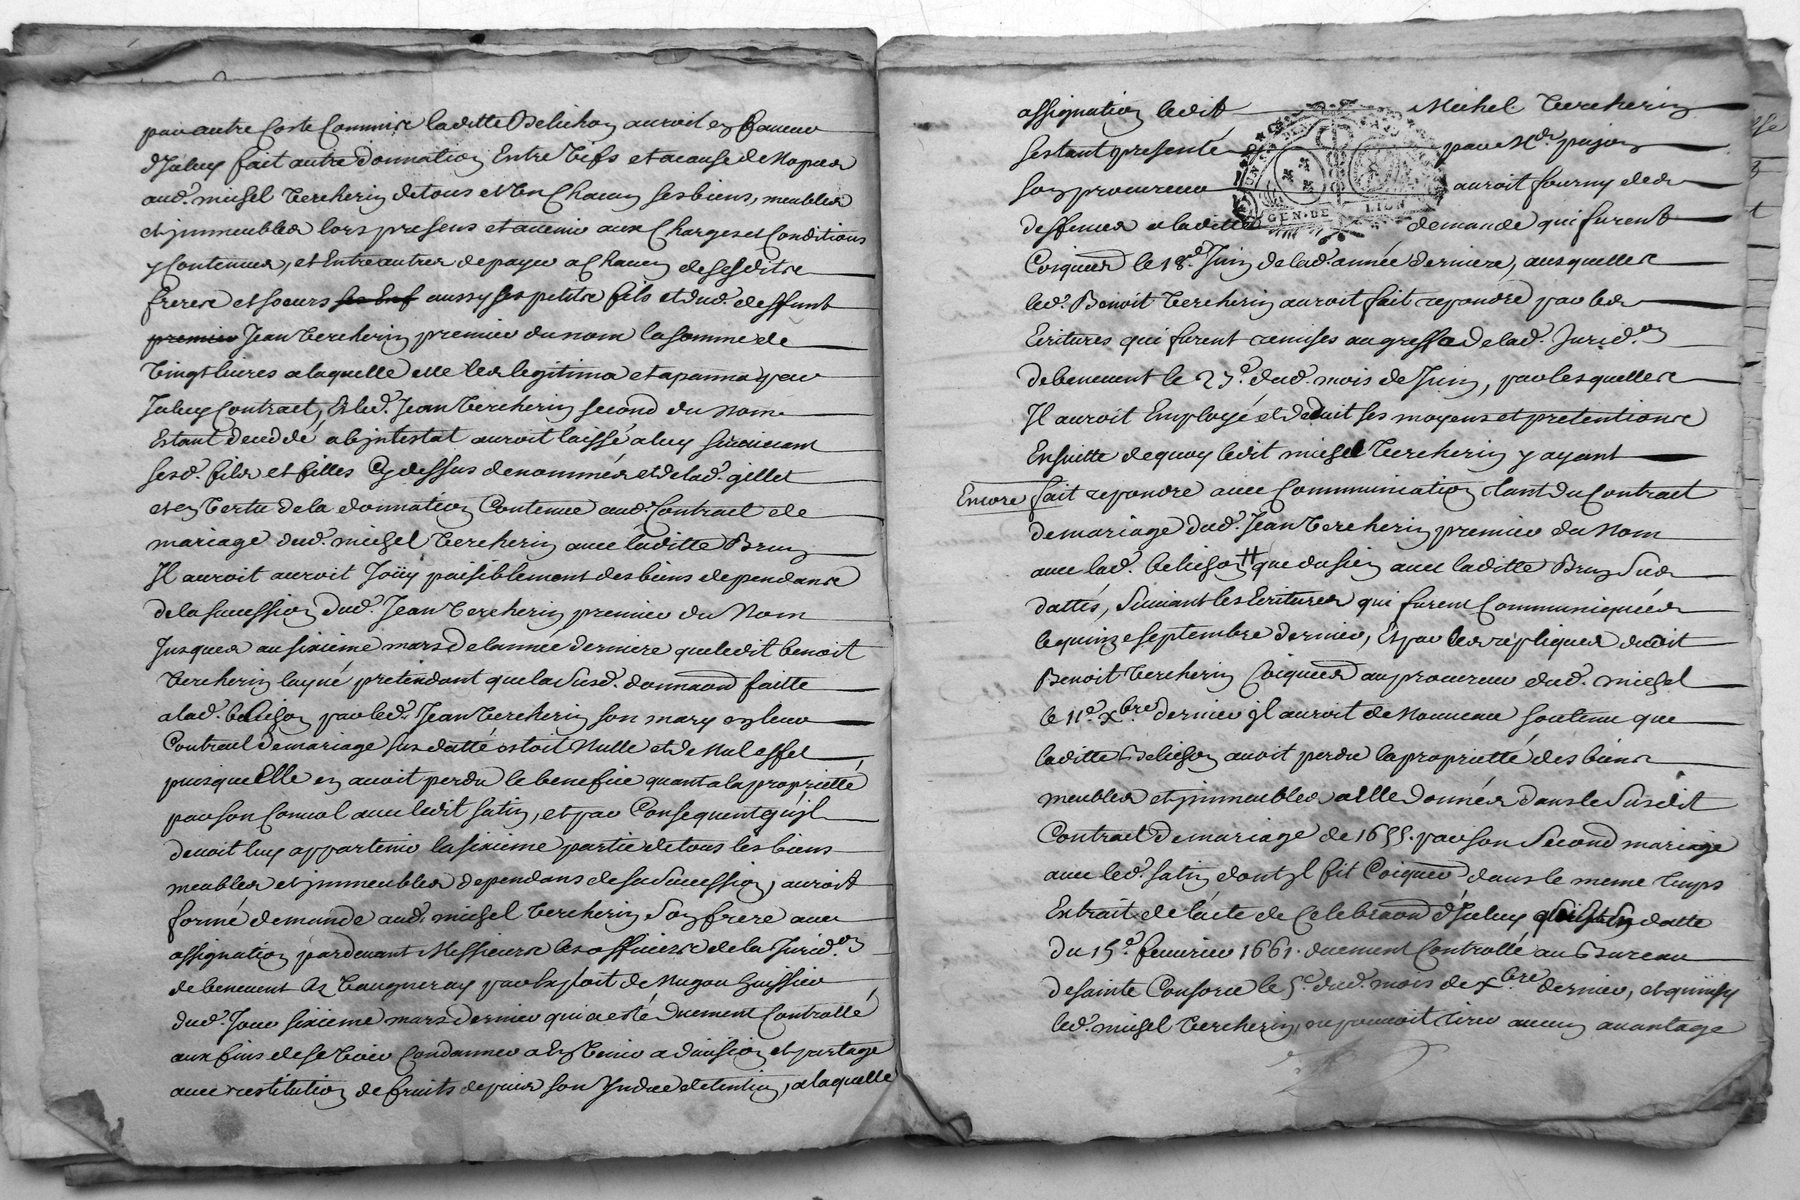 par autre Coste Comme laditte Belichon auroit en faveur
d'Iceluy fait autre donnation Entre Vifs et a cause de Nopces
aud.t michel Vercherin de tous et Un Chacun ses biens, meubles
et jmmeubles lors presens et avenir aux Charges et Conditions
y Contenues, et Entre autres de payer a Chacun de sesdits
freres et soeurs aussy ses petits fils et dud.t deffunt
Jean Vercherin premier du nom la somme de
Vingt livres a laquelle elle les legitima et apanna par
Iceluy Contract, Et led.t Jean Vercherin second du Nom
Estant decedé abjntestat auroit laissé a luy survivans
sesd.t fils et filles Cy dessus denommés et de lad.t gillet
et en Vertu de la donnation Contenue aud.t Contract de
mariage dud.t michel Vercherin avec laditte Brun
Il auroit auroit Joüy paisiblement des biens dependans
de la succession dud.t Jean Vercherin premier du Nom
Jusques au sixieme mars de lannée derniere que ledit benoit
Vercherin layné pretendant que la Susd.t donnaon faitte
a lad.t belichon par led.t Jean Vercherin son mary en leur
Contract de mariage sus datté estoit Nulle et de Nul effet
puisque Elle en avoit perdu le benefice quant a la proprietté
par son Convol avec ledit Satin, et par Consequent qu'jl
devoit luy appartenir la sixieme partie de tous les biens
meubles et jmmeubles dependans de sa Succession, auroit
formé demande aud.t michel Vercherin Son frere avec
assignation pardevant Messieurs les officiers de la Jurid.on
de benevent Et Vaugneray par Exploit de Nugou huissier
dud.t Jour sixieme mars dernier qui a esté Duement Controllé
aux fins de se Voir Condamner a En Venir a division et partage
avec restitution de fruits depuis son Jndue detention, a laquelle
assignation ledit Michel Vercherin
sestant presenté par M.e pujon
son procureur auroit fourny de
deffences a laditte demande qui furent
Coiquées le 18.e Juin de lad.t année derniere, ausquelles
led.t Benoit Vercherin auroit fait repondre par les
Ecritures qui furent remises au greffe de lad.t Jurid.on
de benevent le 27.e dud.t mois de Juin, par lesquelles
Il auroit Employé et deduit ses moyens et pretentions
Ensuitte de quoy ledit michel Vercherin y ayant
Encore fait repondre avec Communication tant du Contract
de mariage dud.t Jean Vercherin premier du Nom
avec lad.t belichon que du sien avec laditte Brun Sus
dattés, Suivant les Ecritures qui furent Communiquées
le quinze septembre dernier, Et par les repliques dudit
Benoit Vercherin Coiquées au procureur dud.t michel
le 11.e Xbre dernier jl auroit de Nouveau soutenu que
laditte Belichon avoit perdu la proprietté des biens
meubles et jmmeubles a Elle donnés dans le Susdit
Contract de mariage de 1655. par son Second mariage
avec led.t Satin dont jl fit Coiquer dans le meme temps
Extrait de lacte de Celebraon d'Iceluy datte
du 15.e fevrier 1661. duement Controllé au Bureau
de sainte Consorce le 5.e dud.t mois de Xbre dernier, et qu'ainsy
led.t michel Vercherin ne pouvoit tirer aucun avantage
GEN·DE LION